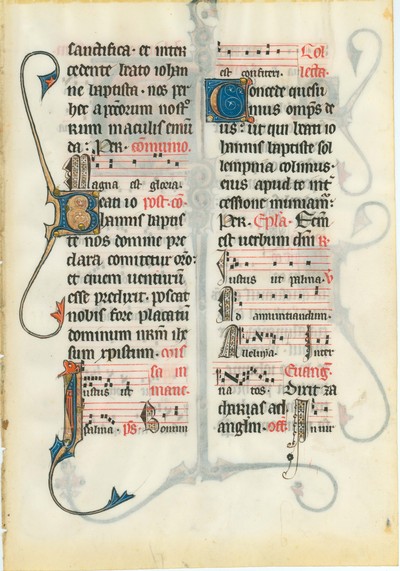 sanctifica · et inter
cedente beato iohan
ne baptista · nos per
hec a peccorum nostro
rum maculis emun
da : Per · communio.
Magna est gloria·
Beati io post·co·
hannis baptis
te nos domine pre
clara comitetur oro:
et quem uenturum
esse predixit· poscat
nobis fore placatum
dominum nrm ihe
sum xpistum.
sa in
mane·
Iustus ut
palma· ps· Bonum
est confiteri· Col
lecta·
Concede quesu
mus omps de
us : ut qui beati io
hannis baptiste sol
lempnia colimus·
eius apud te int
cessione muniam:
Per· Epla· Ecce
est uerbum dni R
Iustus ut palma· V
Ad annuntiandum·
Alleluia· Inter
natos· Euang·
Dixit za
charias ad
anglm· off